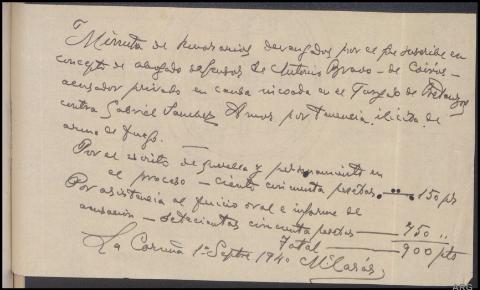 Minuta de honorarios devengados por el que suscribe en
concepto de abogado defensor de Antonio Bravo - de Coirós -
acusador privado en causa incoada en el Juzgado de Betanzos
contra Gabriel Sanchez Amor por tenencia ilícita de
arma de fuego.
Por el escrito de querella y personamiento en
el proceso - ciento cincuenta pesetas 150 pts
Por asistencia al juicio oral e informe de
acusación - setecientas cincuenta pesetas 750 "
Total 900 pts
La Coruña 1º Septre 1940
ARG